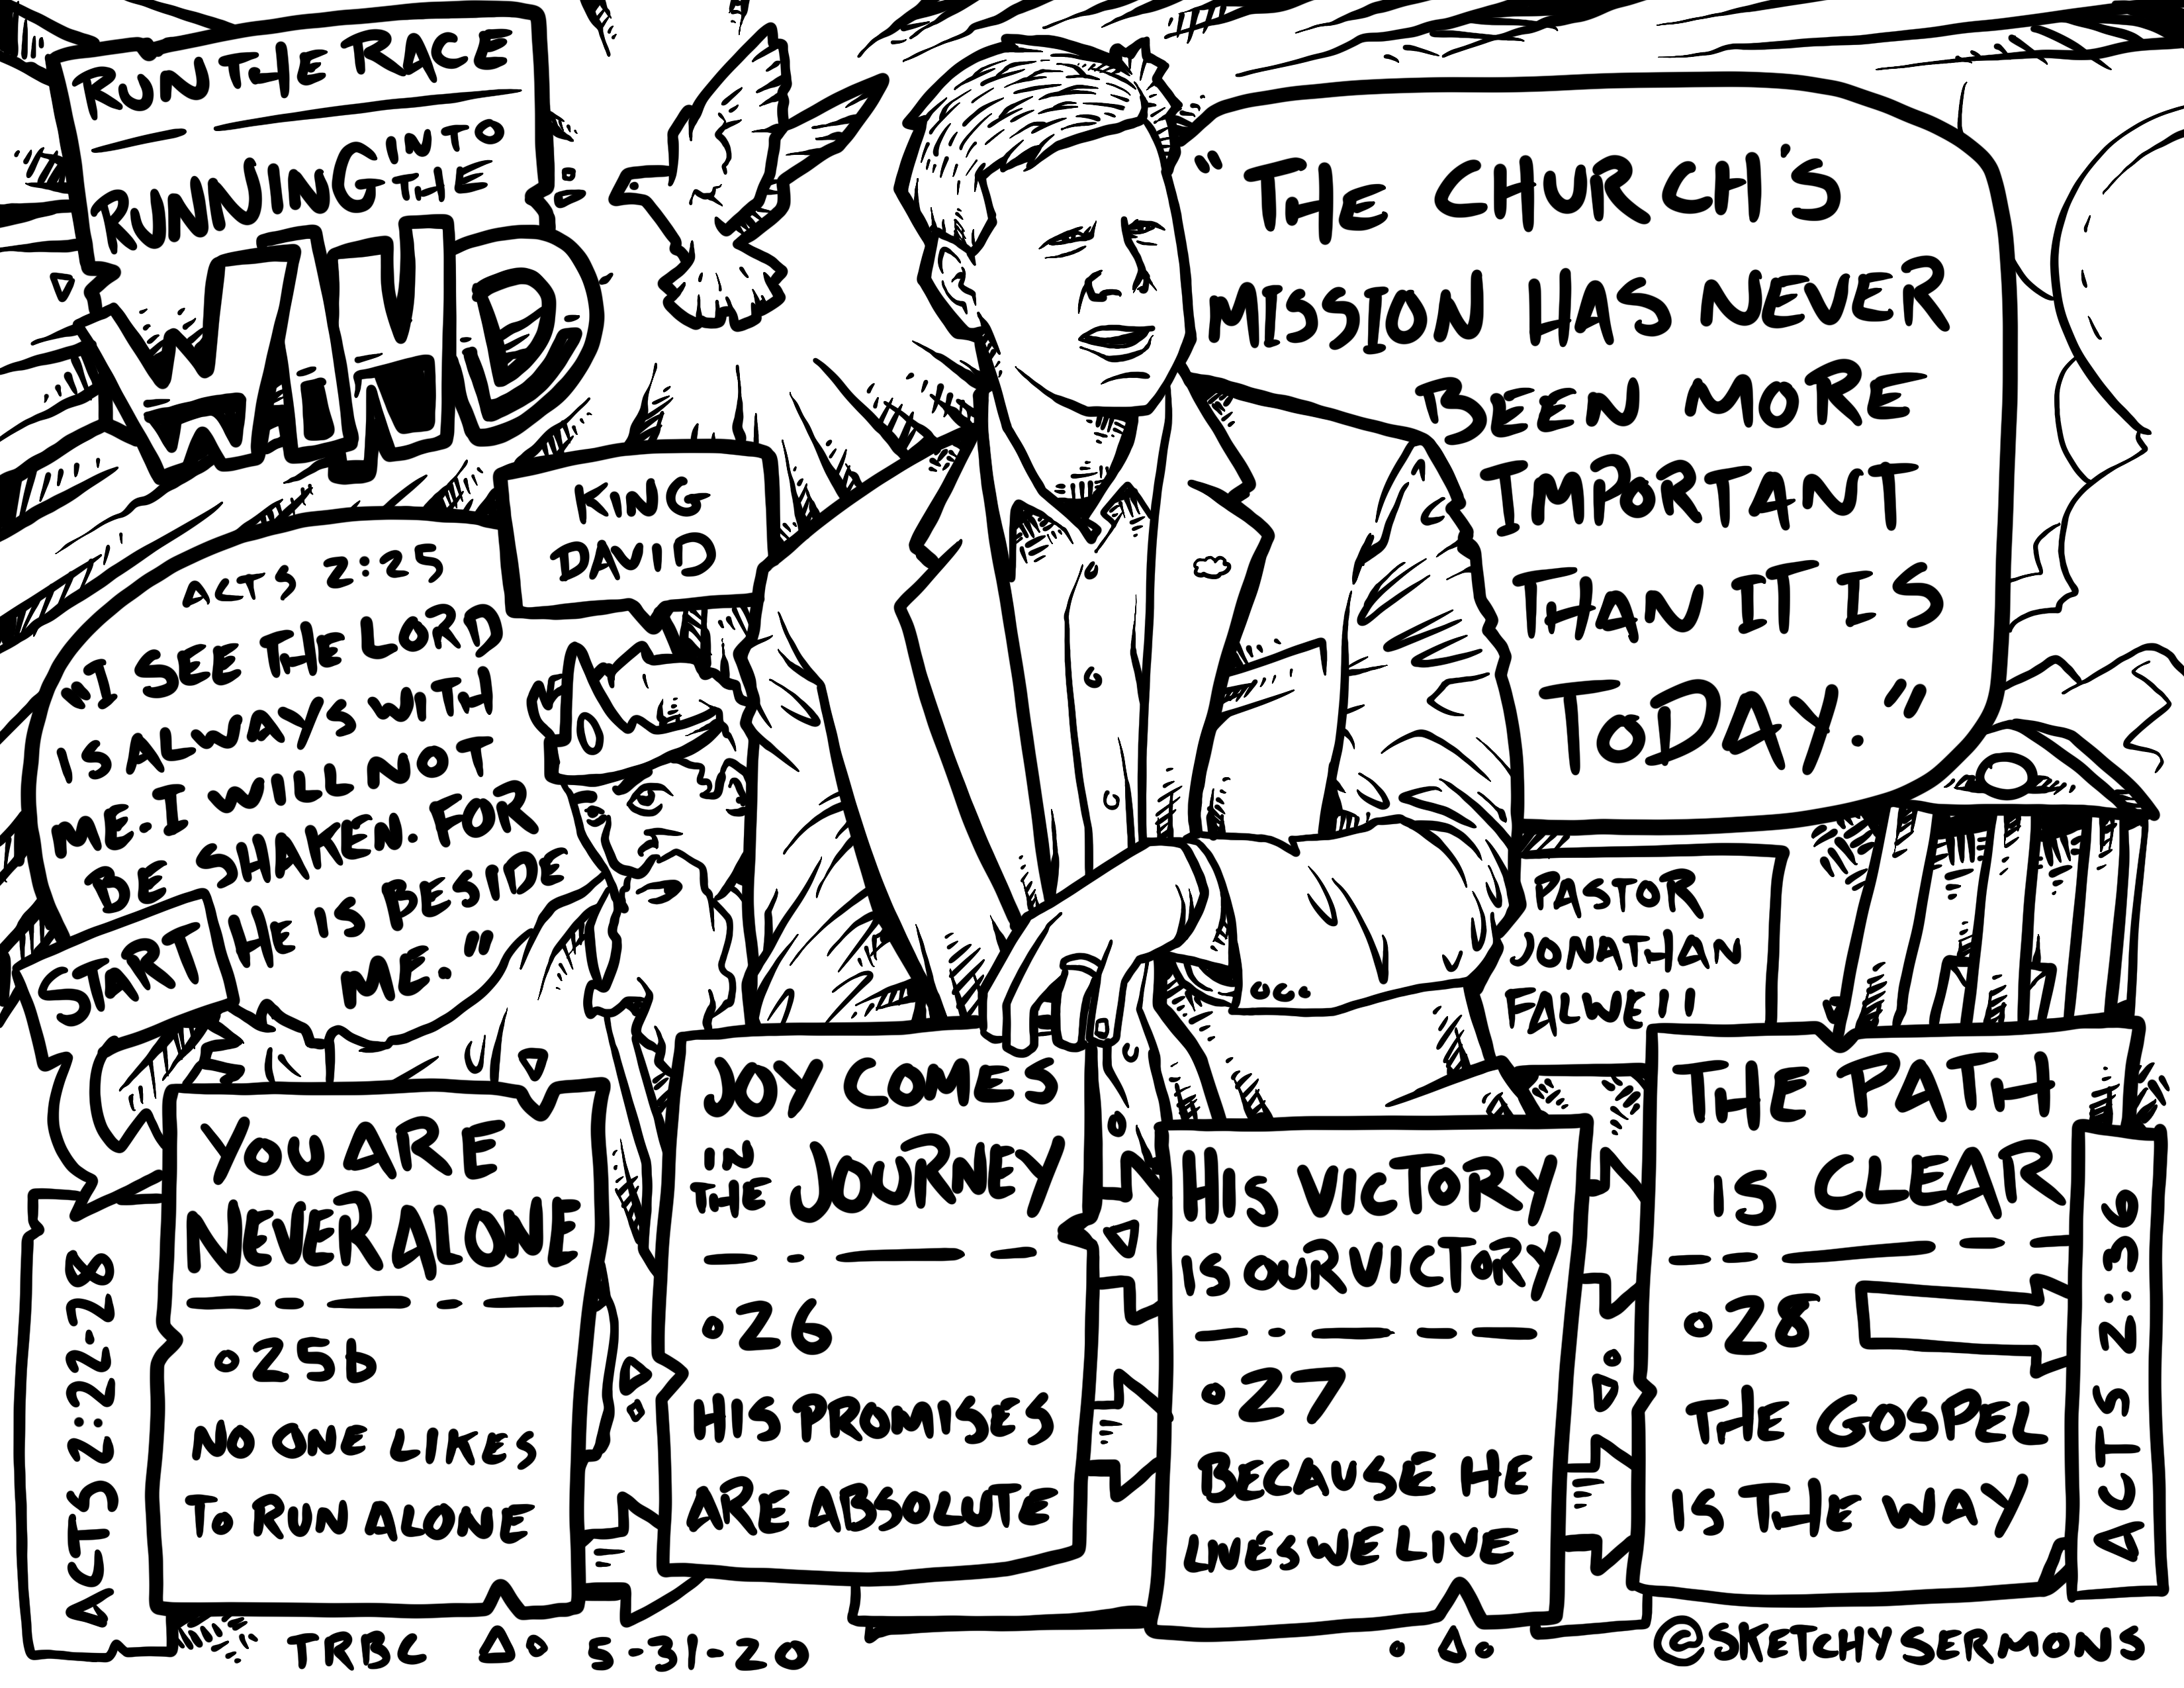 RUN THE RACE
RUNNING INTO
THE
WIND
"THE CHURCH'S
MISSION HAS NEVER
BEEN MORE
IMPORTANT
THAN IT IS
TODAY."
PASTOR
JONATHAN
FALWEll
KING
DAVID
ACTS 2:25
"I SEE THE LORD
IS ALWAYS WITH
ME. I WILL NOT
BE SHAKEN. FOR
HE IS BESIDE
ME."
START
ACTS 2:22-28
YOU ARE
NEVER ALONE
25b
NO ONE LIKES
TO RUN ALONE
JOY COMES
IN
THE JOURNEY
26
HIS PROMISES
ARE ABSOLUTE
HIS VICTORY
IS OUR VICTORY
27
BECAUSE HE
LIVES WE LIVE
THE PATH
IS CLEAR
28
THE GOSPEL
IS THE WAY
ACTS 2:36
TRBC 5-31-20
@SKETCHYSERMONS